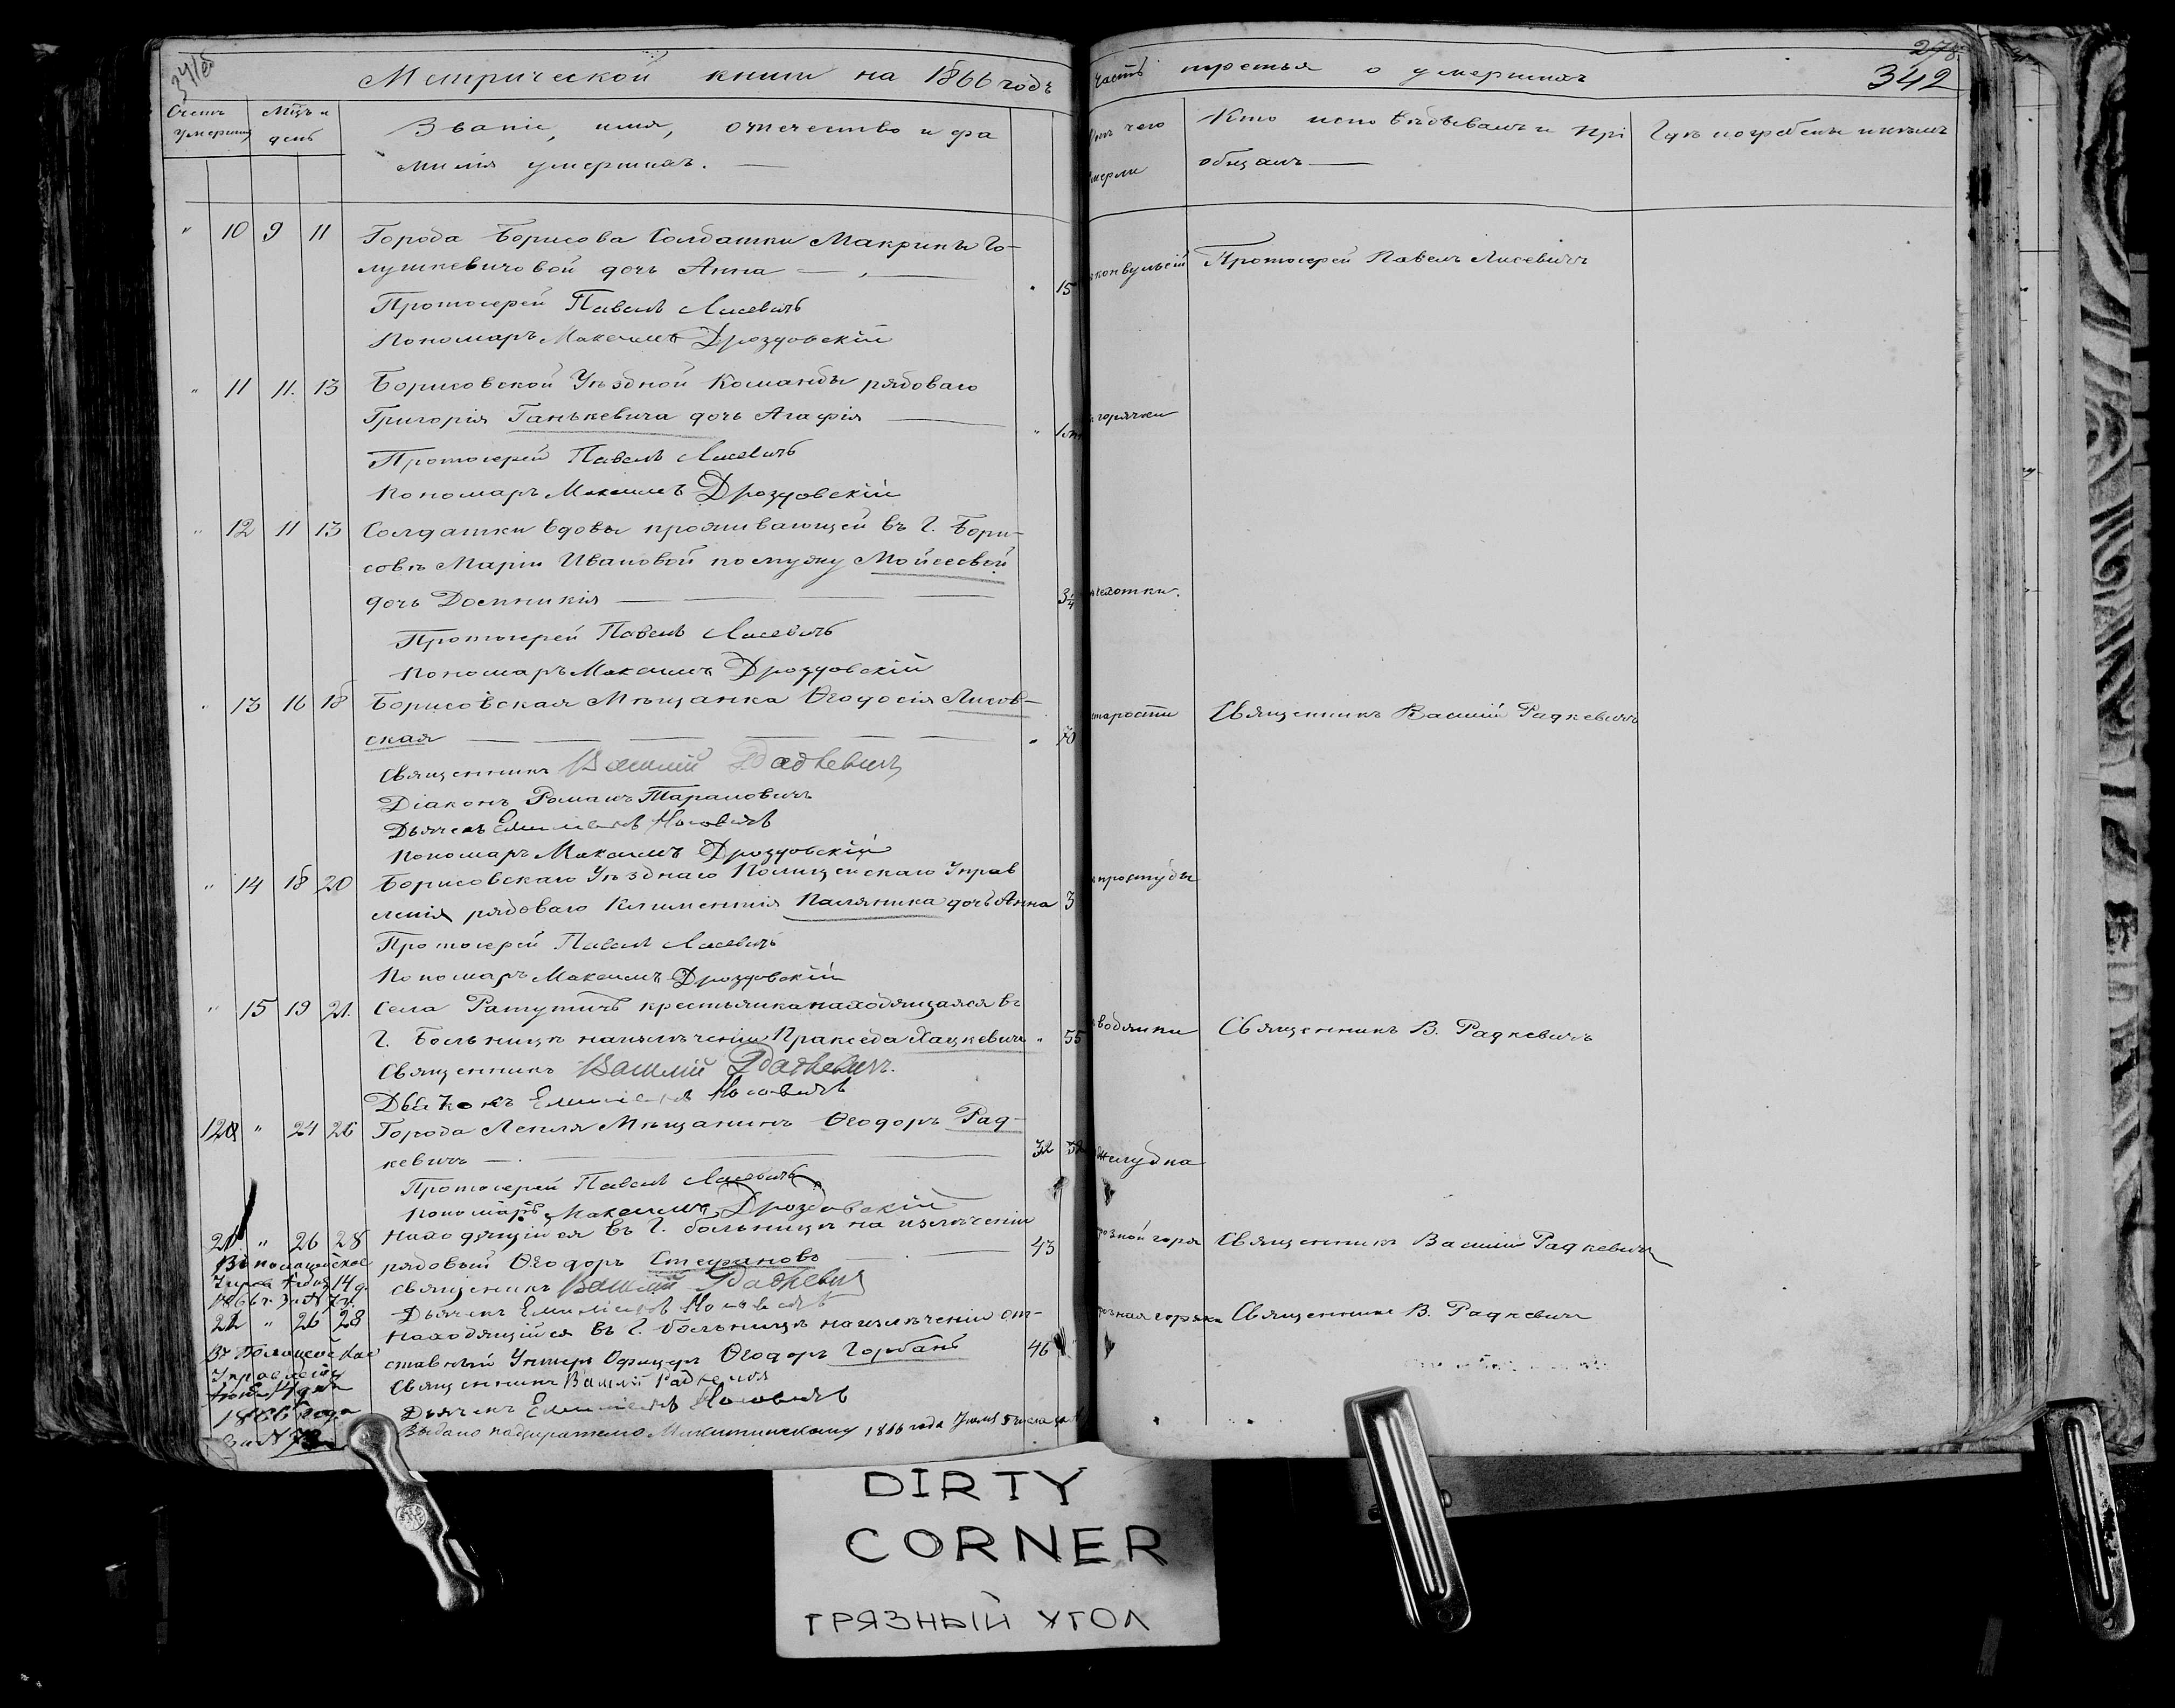 341об
Метрической книги на 1866 годъ
Счетъ умершихъ
Мѣсц и день
Званіе, имя, отчество и фа
милія умершихъ.
10 9 11 Города Борисова Солдатки Макрины Го-
лушкевичовой дочь Анна
15
Протоіерей Павелъ Лисевичъ
Пономарь Максимъ Дроздовскій
11 11. 13 Борисовской Уѣздной Команды рядоваго
Григорія Ганькевича дочь Агафія
Протоіерей Павелъ Лисевичъ
Пономарь Максимъ Дроздовскій
12 11 13 Солдатки вдовы проживающей въ Г. Бори-
совѣ Маріи Ивановой по мужу Мойсеевой
дочь Домникія
Протоіерей Павелъ Лисевичъ
Пономарь Максимъ Дроздовскій
13 16 18 Борисовская Мѣщанка Ѳеодосія Лисов-
ская 70
Священникъ Василій Радкевичъ
Діаконъ Романъ Тарановичъ
Дьячекъ
Пономарь Максимъ Дроздовскій
14 18 20 Борисовскаго Уѣзднаго Полицейскаго Управ
ленія рядоваго Климентія Паляника дочь Анна 3
Протоіерей Павелъ Лисевичъ
Пономарь Максимъ Дроздовскій
15 19 21. Села Ратутичъ крестьянка находящаяся въ
Г. Больницѣ на излѣченіи Праксида Хацкевичъ 55
Священникъ Василій Радкевичъ.
24 26 Города Лепля Мѣщанинъ Ѳеодоръ Рад-
кевичъ 32 32
Протоіерей Павелъ Лисевичъ
Пономарь Максимъ Дроздовскій
21 26 28 Находящійся въ Г. больницѣ на излѣченіи
рядовый Ѳеодоръ Стефановъ 43
Священникъ Василій Радкевичъ
Дьячекъ
22 26 28 Находящійся въ Г. больницѣ на излѣченіи от-
ставный Унтеръ Офицеръ Ѳеодоръ Горбань 46
Священникъ Василій Радкевичъ
Дьячекъ
Въ Полицейское
Управленіе
1866 года
Выдано надзирателю 1866 года
278
342
часть третья о умершихъ
Отъ чего
умерли
Кто исповѣдывалъ и прі
общалъ
Гдѣ погребены
конвульсій Протоіерей Павелъ Лисевичъ
горячки
чахотки.
старости Священникъ Василій Радкевичъ
простуды
водянки Священникъ В. Радкевичъ
желудка
Священникъ Василій Радкевичъ
Священникъ В. Радкевичъ
DIRTY
CORNER
ГРЯЗНЫЙ УГОЛ